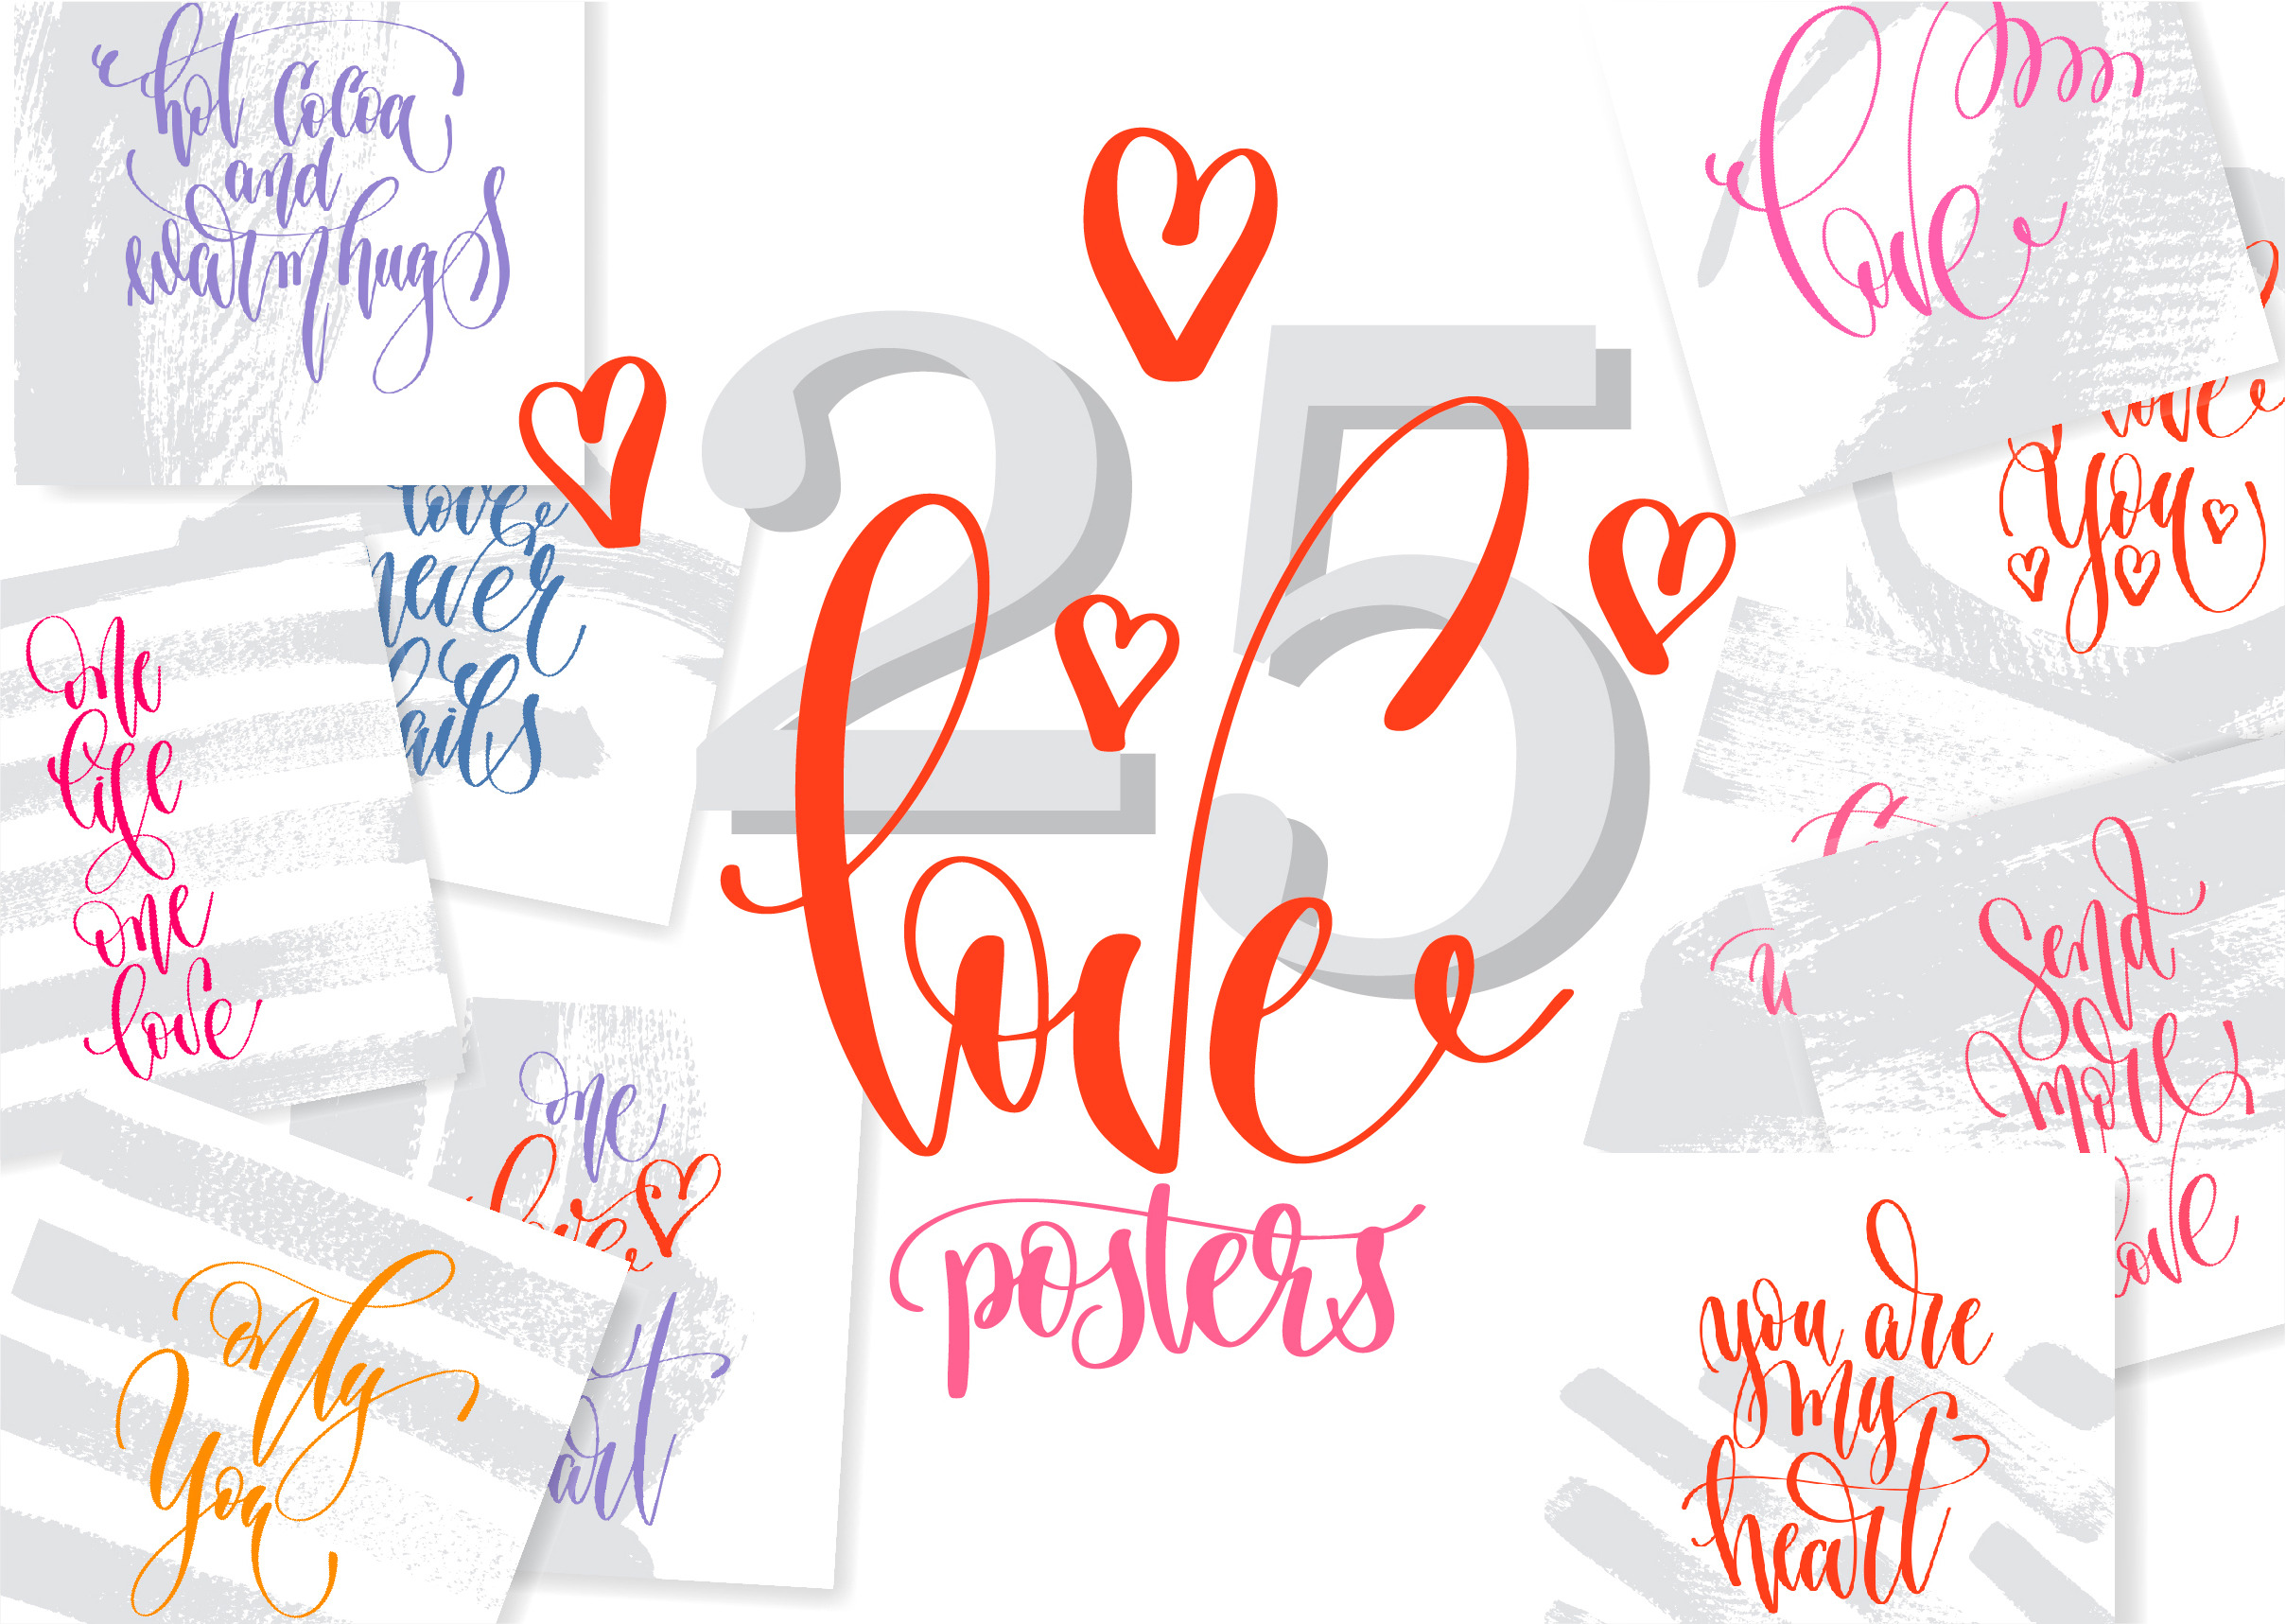 hot cocoa
and
warm hugs
love
never
fails
one
life
one
love
one
love
only
you
25
love
posters
love
love
you
send
more
love
you are
my
heart